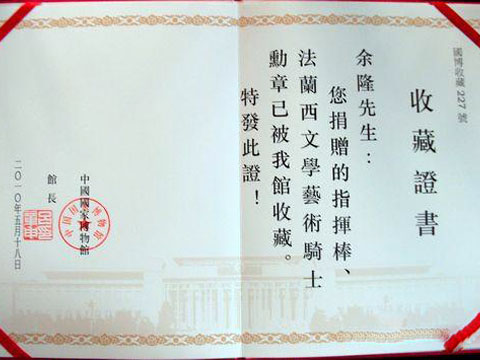 國博收藏 227 號
收藏證書
余隆先生：
您捐贈的指揮棒、
法蘭西文學藝術騎士
勳章已被我館收藏。
特發此證！
中國國家博物館
館長
二〇一〇年五月十八日